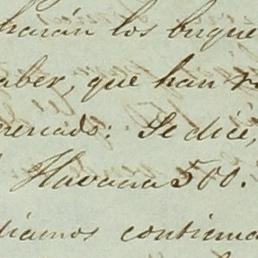 harán los buque
aber, que han r
Se dice,
Havana 500.
diamos continua